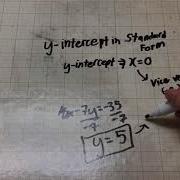 y-intercept in Standard
Form
y-intercept → x=0
Vice
-7y=-35
-7 -7
y=5